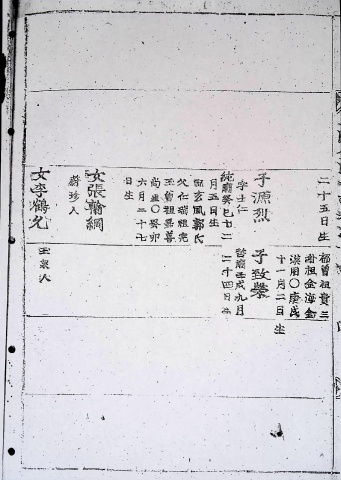 二十五日生
曾祖貴三
外祖金海金
漢周〇庚戌
十一月二日生
子源烈
字士仁
純廟癸巳十二
月五日生
配玄風郭氏
父仁瑞祖完
玉曾祖
〇癸卯
六月二十七
日生
子致榮
哲廟壬戌九月
二十四日生
女張翰綱
蔚珍人
女李鶴允
人